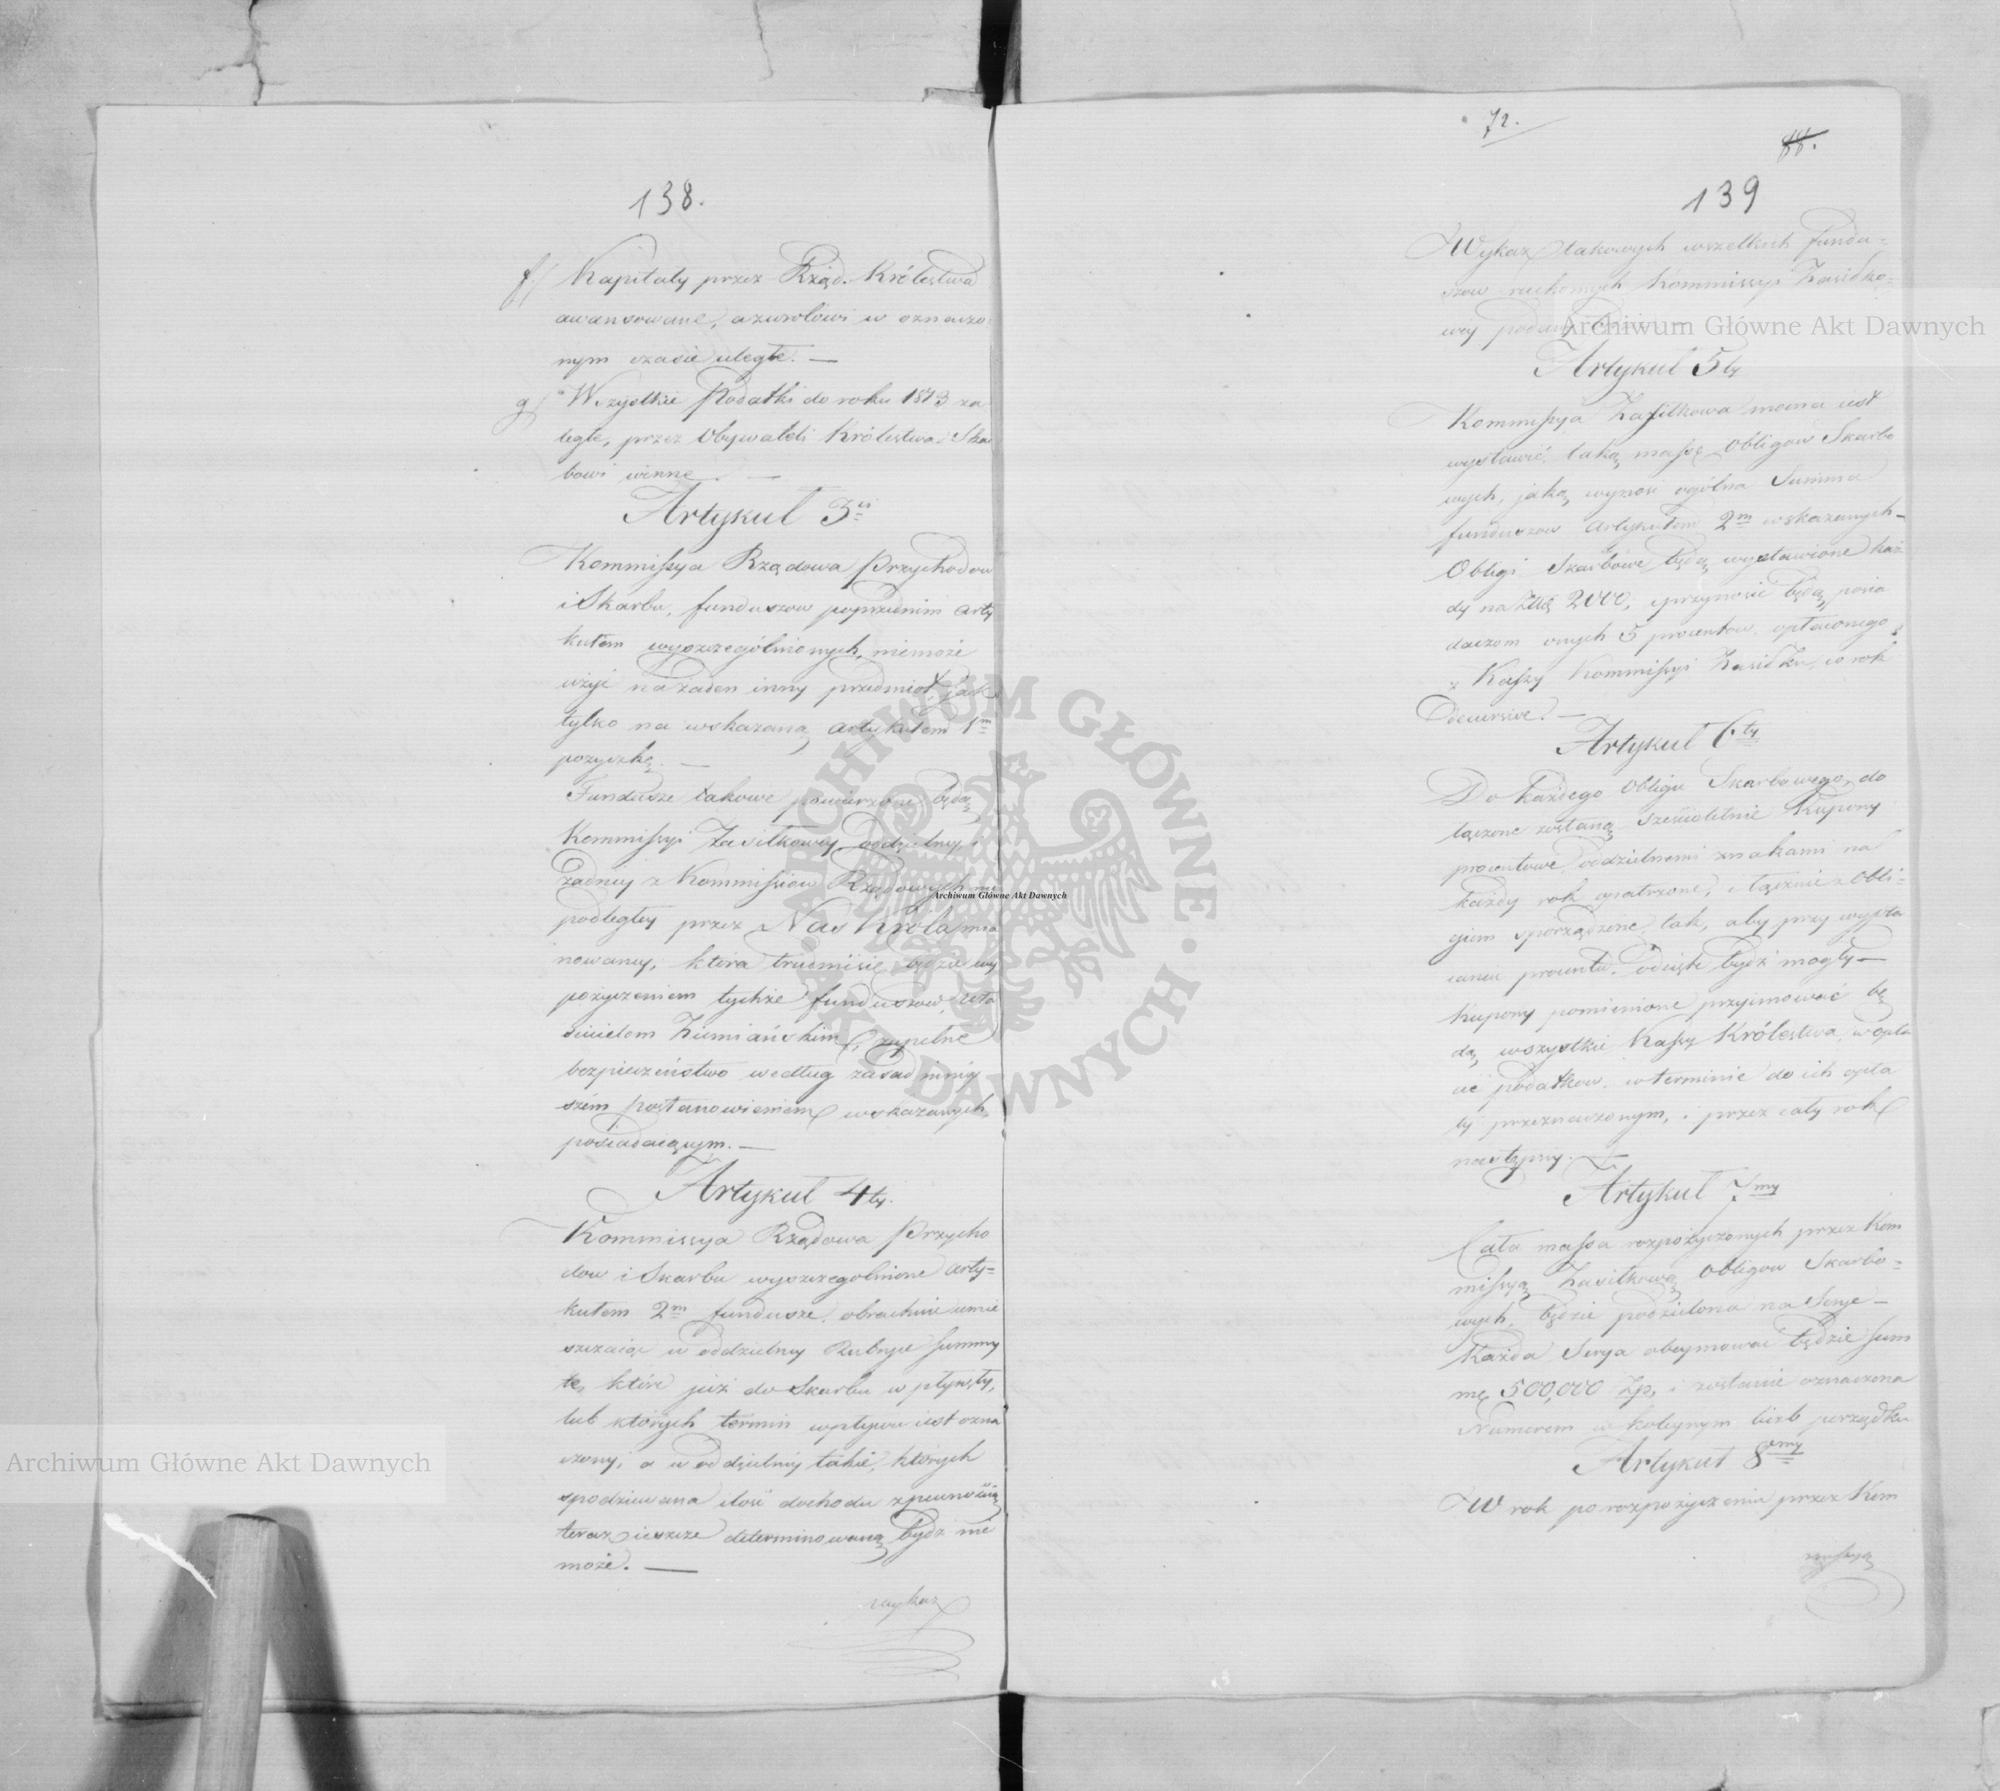 138.
f/ Kapitały przez Rząd Królestwa
awansowane, a zwrotowi w oznaczo
nym czasie uległe. —
g/ Wszystkie Podatki do roku 1813 za
ległe, przez Obywateli Królestwa Skar
bowi winne. —
Artykuł 3ci
Kommissya Rządowa Przychodow
i Skarbu, funduszow poprzednim arty
kułem wyszczególnionych, niemoże
użyć na żaden inny przedmiot, jak
tylko na wskazaną artykułem 1m
pożyczkę. —
Fundusze takowe powierzone będą
Kommissyi Zasiłkowey oddzielney i
żadney z Kommissiow Rządowych nie
podległey przez Nas Króla mia
nowaney, która trudnić się będzie wy
pożyczeniem tychże funduszow, wła
ścicielom Ziemiańskim, zupełne
bezpieczeństwo według zasad niniey
szém postanowieniem wskazanych,
posiadaiącym. —
Artykuł 4ty.
Kommissya Rządowa Przycho
dow i Skarbu wyszczególnione arty=
kułem 2m fundusze, obrachuie umie
szczaiąc w oddzielney Rubryce summy
te, które już do Skarbu wpłynęły,
lub których termin wpływu iest ozna
czony, a w oddzielney takie, których
spodziewana ilość dochodu z pewnością
teraz ieszcze determinowaną bydź nie
może. —
wykaz
72.
88.
139
Wykaz takowych wszelkich fundu=
szow ruchomych Kommissyi Zasiłko=
wey podany
Artykuł 5ty
Kommissya Zasiłkowa mocna iest
wystawić taką massę Obligow Skarbo
wych, jaką wynosi ogólna Summa
funduszow artykułem 2m wskazanych —
Obligi Skarbowe będą wystawione każ
dy na Złł 2000, i przynosić będą posia
daczom onych 5 procentow, opłaconego
z Kassy Kommissyi Zasiłku, co rok
Decursive. —
Artykuł 6ty
Do każdego Obligu Skarbowego, do
łączone zostaną sześcioletnie Kupony
procentowe oddzielnemi znakami na
każdy rok opatrzone, i łącznie z Obli=
giem sporządzone tak, aby przy wypła
caniu procentu, odcięte bydź mogły —
Kupony pomienione przyimować bę
dą wszystkie Kassy Królestwa, w opła
cie podatkow, w terminie do ich opła
ty przeznaczonym, i przez cały rok
następny. —
Artykuł 7my
Cała massa rozpożyczonych przez Kom
missyą Zasiłkową Obligow Skarbo=
wych, będzie podzielona na Serye —
Każda Serya obeymować będzie sum
mę 500,000 Zp, i zostanie oznaczona
Numerem w koleynym liczb porządku
Artykuł 8my
W rok po rozpożyczeniu przez Kom
missyą
Archiwum Główne Akt Dawnych
Archiwum Główne Akt Dawnych
Archiwum Główne Akt Dawnych
ARCHIWUM GŁÓWNE · AKT DAWNYCH ·